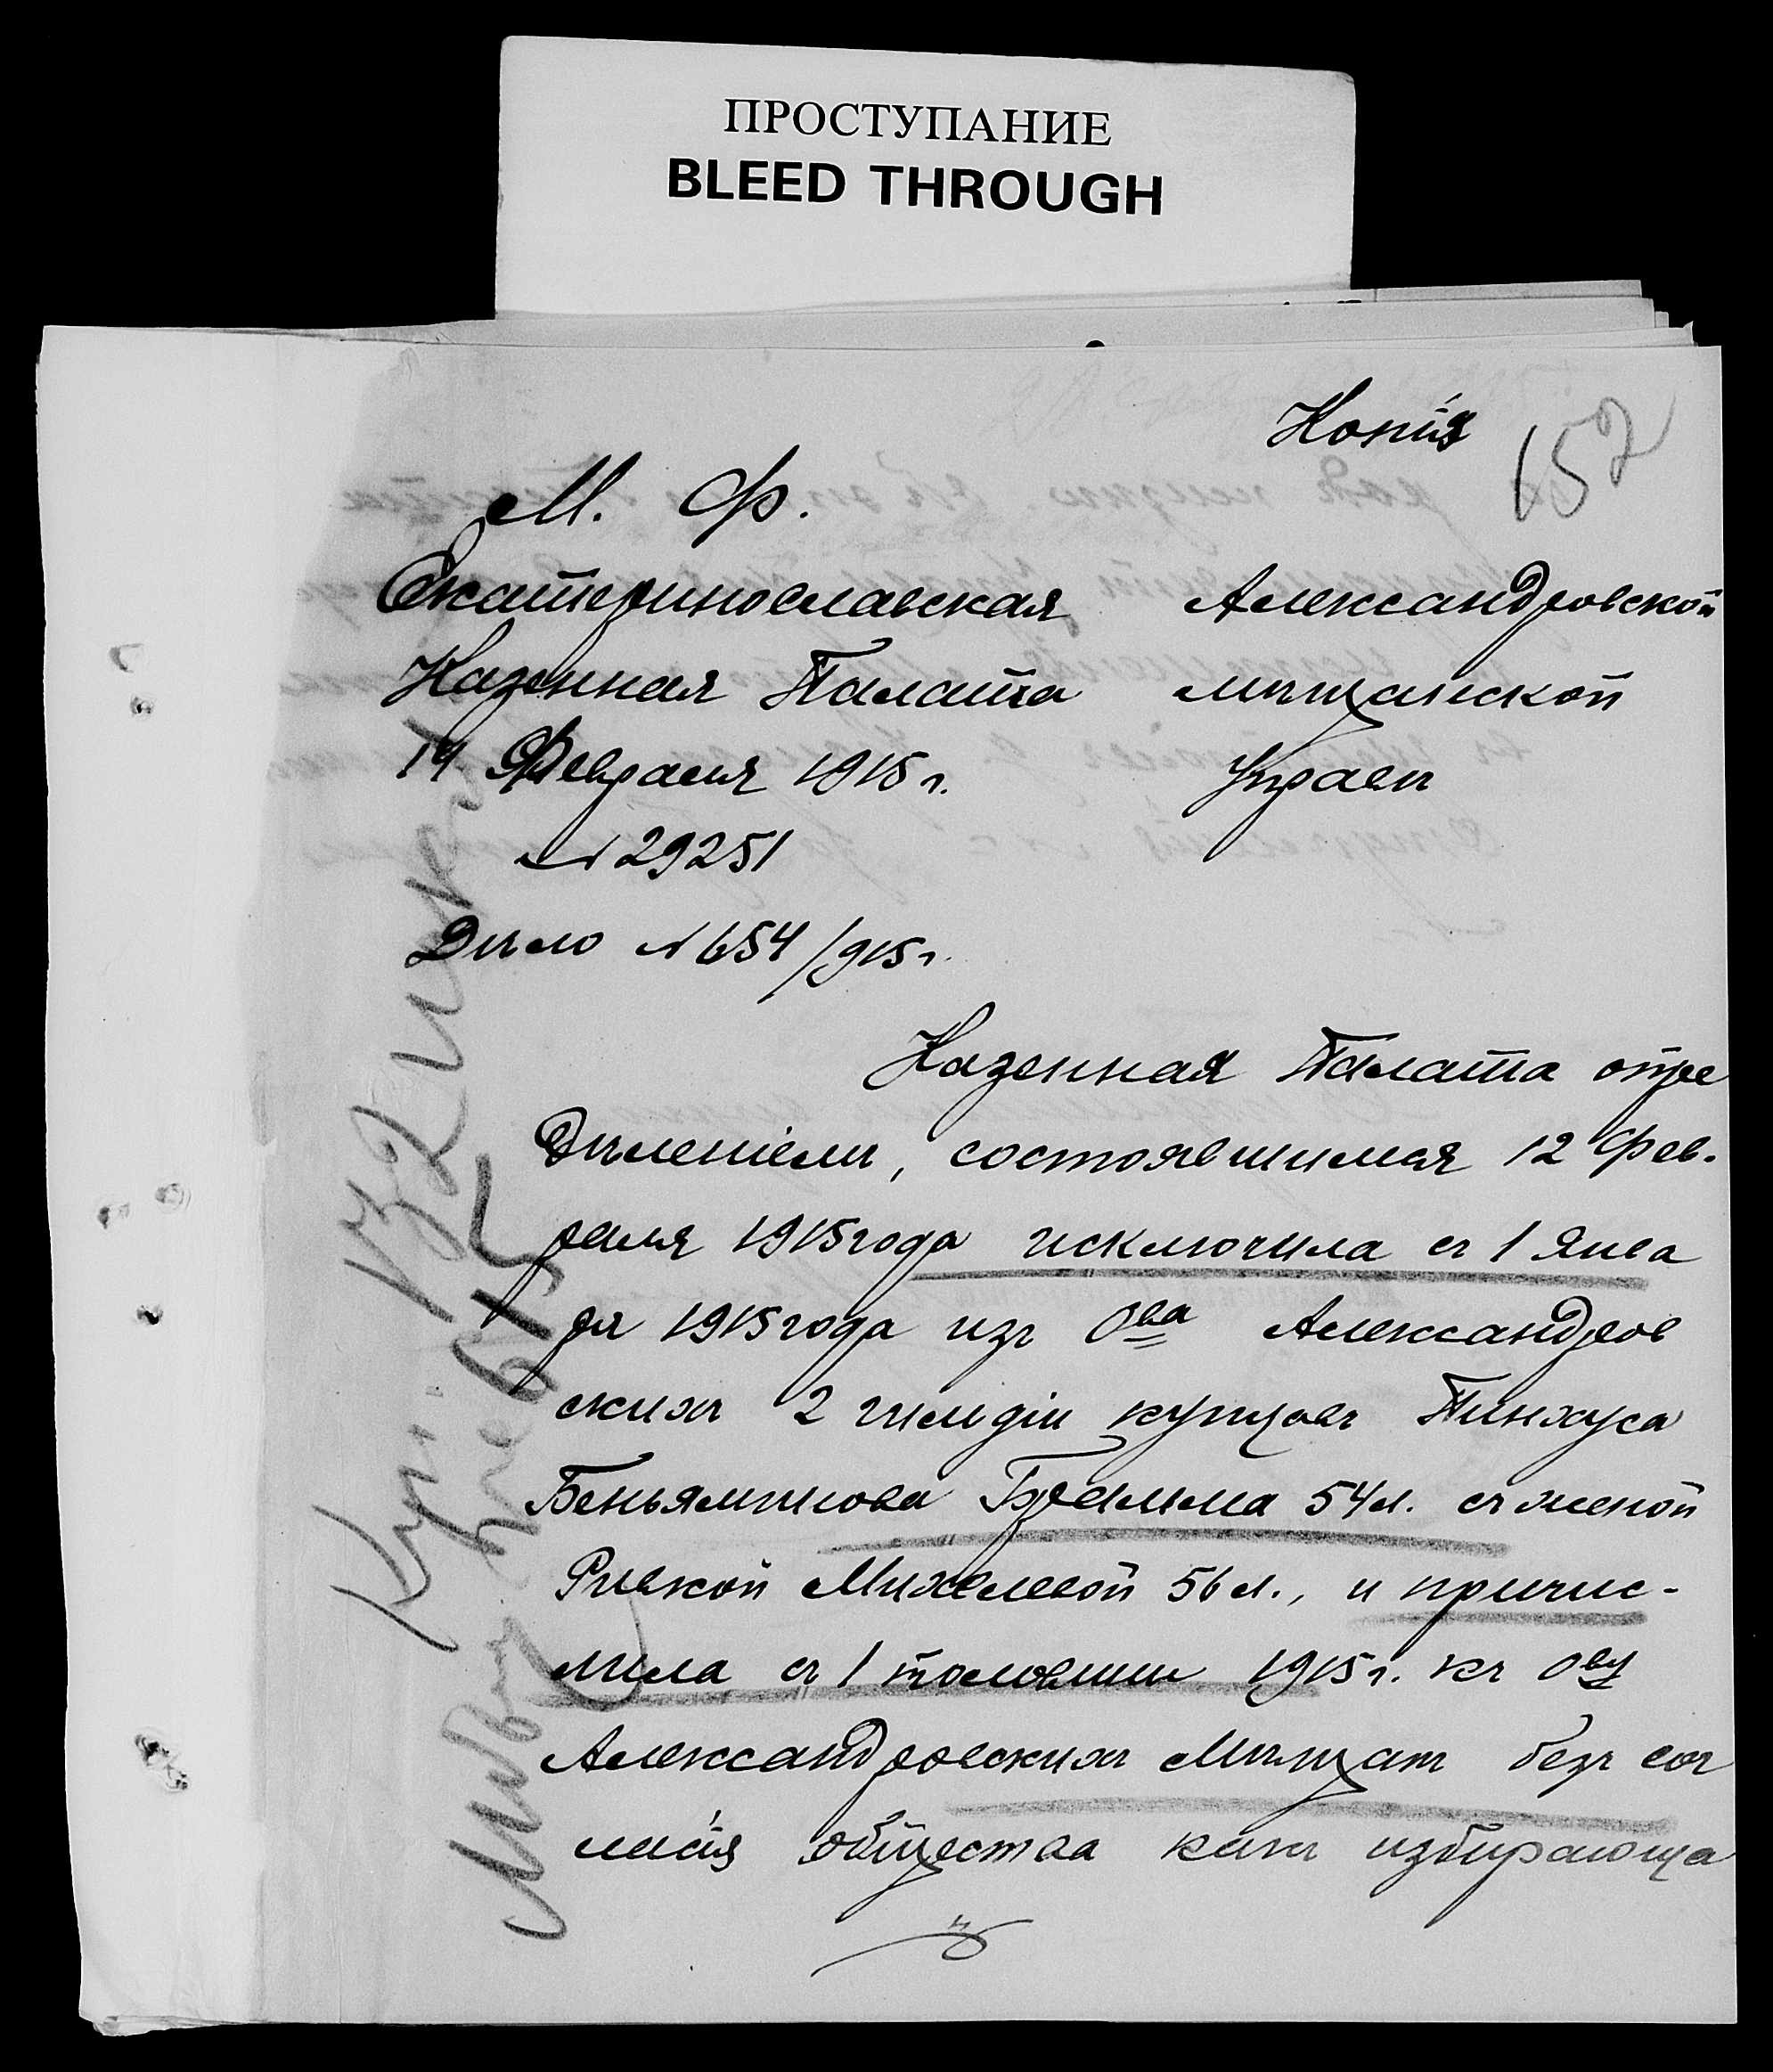 ПРОСТУПАНИЕ
BLEED THROUGH
Копія
152
М. Ф.
Екатеринославская
Казенная Палата
14 Февраля 1915 г.
№ 29251
Дѣло № 654/915 г.
Александровской
мѣщанской
Управѣ
Казенная Палата опре
дѣленіемъ, состоявшимся 12 Фев-
раля 1915 года исключила съ 1 Янва
ря 1915 года изъ О-ва Александров
скихъ 2 гильдіи купцовъ Пинхуса
Беньяминова 54 л. съ женой
Ривкой Михелевой 56 л., и причис-
лила съ 1 половины 1915 г. къ О-ву
Александровскихъ Мѣщанъ безъ сог
ласія общества какъ избирающа